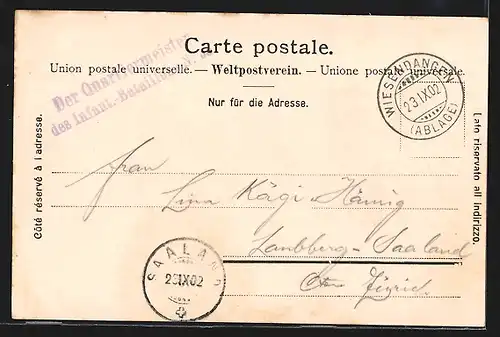 Carte postale.
Union postale universelle. — Weltpostverein. — Unione postale universale.
Nur für die Adresse.
Der Quartiermeister
des Infant.-Bataillon
WIESENDANGEN
23.IX.02
(ABLAGE)
Côté réservé à l adresse.
Lato riservato all indirizzo.
Frau
Lina Kägi-Hännig
Landberg-Saaland
Ct. Zürich
SAALAND
23.IX.02